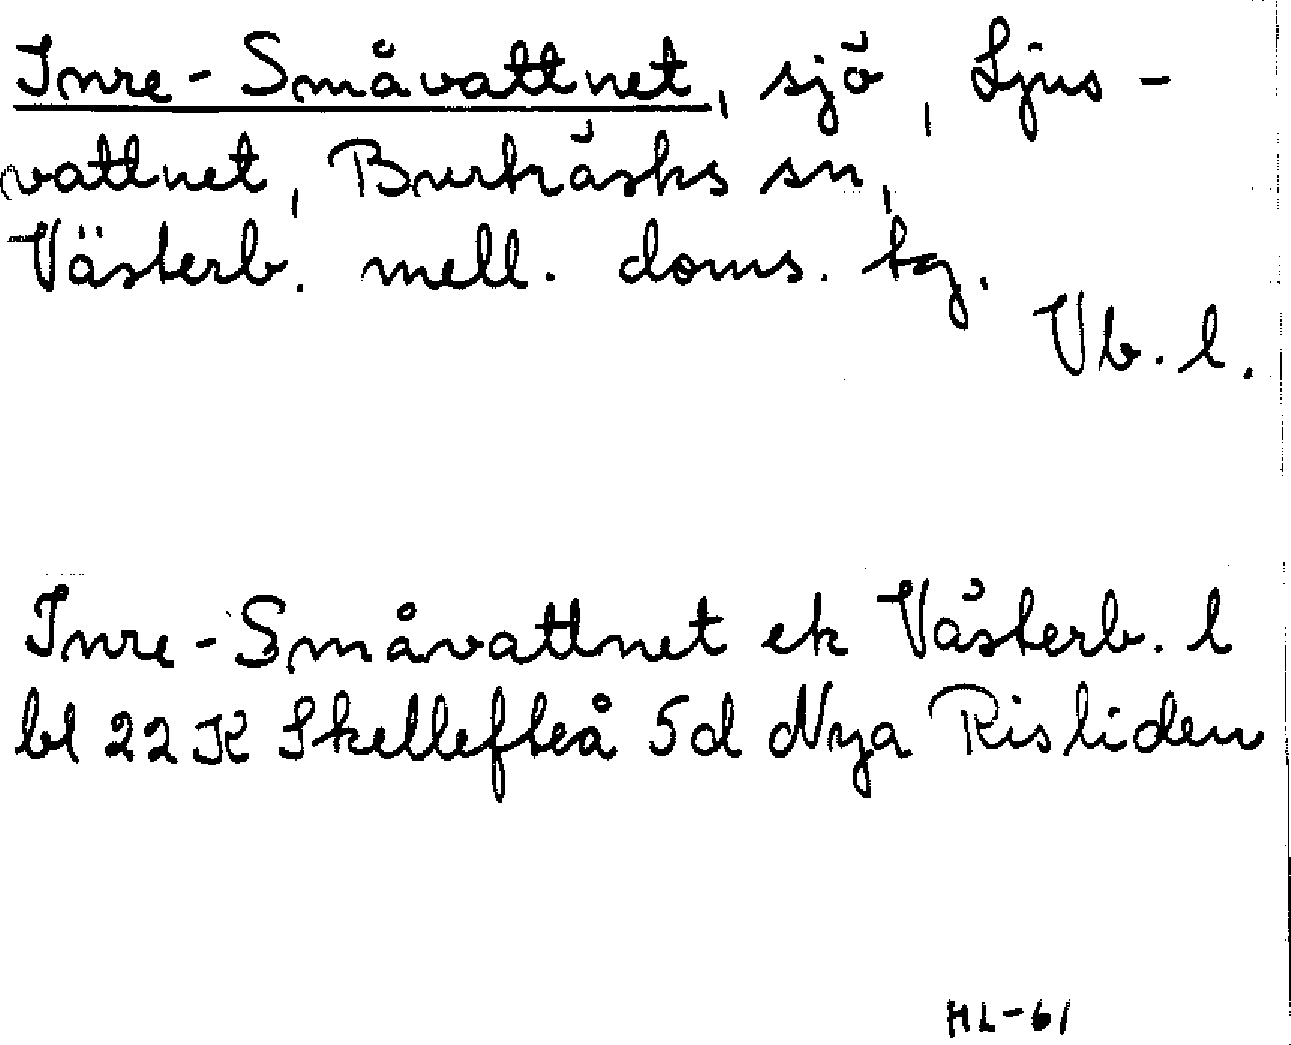 Inre-Småvattnet, sjö, Ljus-
vattnet, Burträsks sn,
Västerb. mell. doms. tg.
Vb. l.
Inre-Småvattnet ek Västerb. l
bl 22K Skellefteå 5d Nya Risliden
HL-61